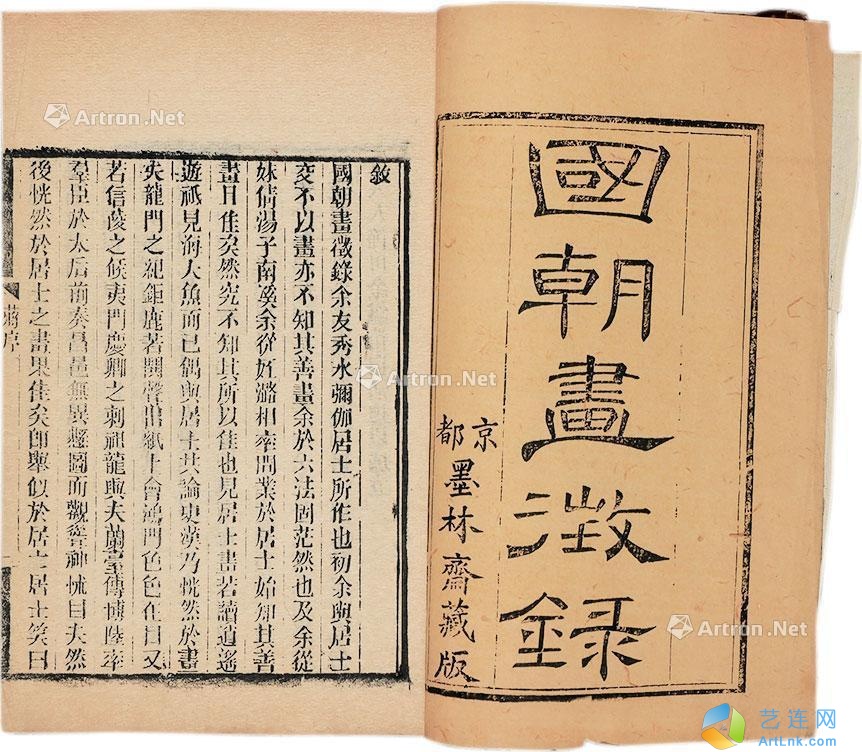 國朝畫徵錄
京都墨林齋藏版
敘
國朝畫徵錄余友秀水彌伽居士所作也初余與居士
交不以畫亦不知其善畫余於六法固茫然也及余從
妹倩湯子南溪余從姪潞相率問業於居士始知其善
畫日佳矣然究不知其所以佳也見居士畫若讀逍遙
遊祇見海大魚而已偶與居士共論史漢乃恍然於畫
夫龍門之紀鉅鹿若聞聲出紙上會鴻門色色在目又
若信陵之候夷門慶卿之刺祖龍與夫蘭臺傳博陸率
羣臣於太后前奏昌邑無異懸圖而觀聳神怵目夫然
後恍然於居士之畫果佳矣卽舉似於居士居士笑曰
蔣序
Artron.Net
Artron.Net
Artron.Net
Artron.Net
艺连网
ArtLnk.com